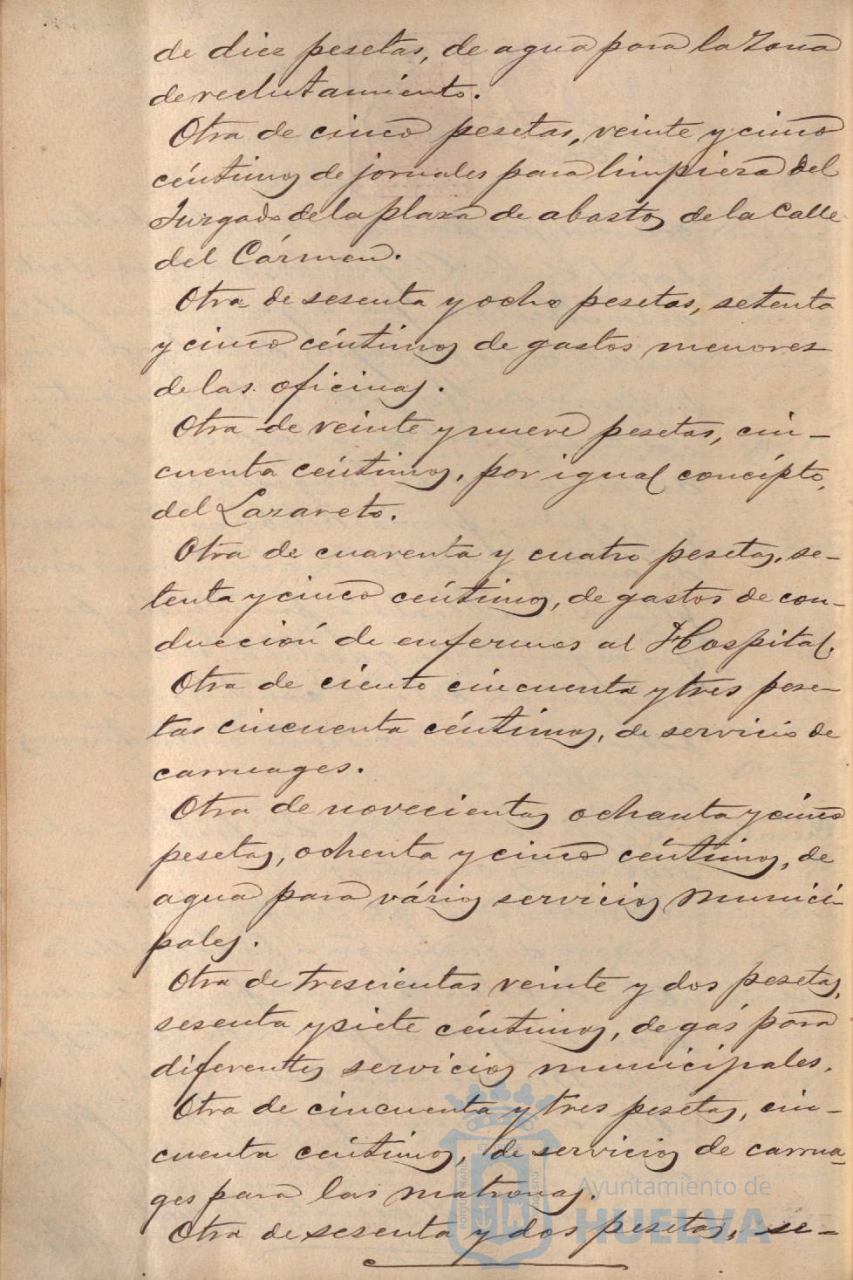 de diez pesetas, de agua para la Zona
de reclutamiento.
Otra de cinco pesetas, veinte y cinco
céntimos de jornales para limpieza del
Juzgado de la plaza de abastos de la Calle
del Cármen.
Otra de sesenta y ocho pesetas, setenta
y cinco céntimos de gastos menores
de las oficinas.
Otra de veinte y nueve pesetas, cin-
cuenta céntimos, por igual concépto,
del Lazareto.
Otra de cuarenta y cuatro pesetas, se-
tenta y cinco céntimos, de gastos de con-
ducción de enfermos al Hospital.
Otra de ciento cincuenta y tres pese-
tas cincuenta céntimos, de servicio de
carruages.
Otra de novecientas ochanta y cinco
pesetas, ochenta y cinco céntimos, de
agua para vários servicios munici-
pales.
Otra de trescientas veinte y dos pesetas,
sesenta y siete céntimos, de gas para
diferentes servicios municipales.
Otra de cincuenta y tres pesetas, cin-
cuenta céntimos, de servicios de carrua-
ges para las matronas.
Otra de sesenta y dos pesetas, se-
Ayuntamiento de
HUELVA